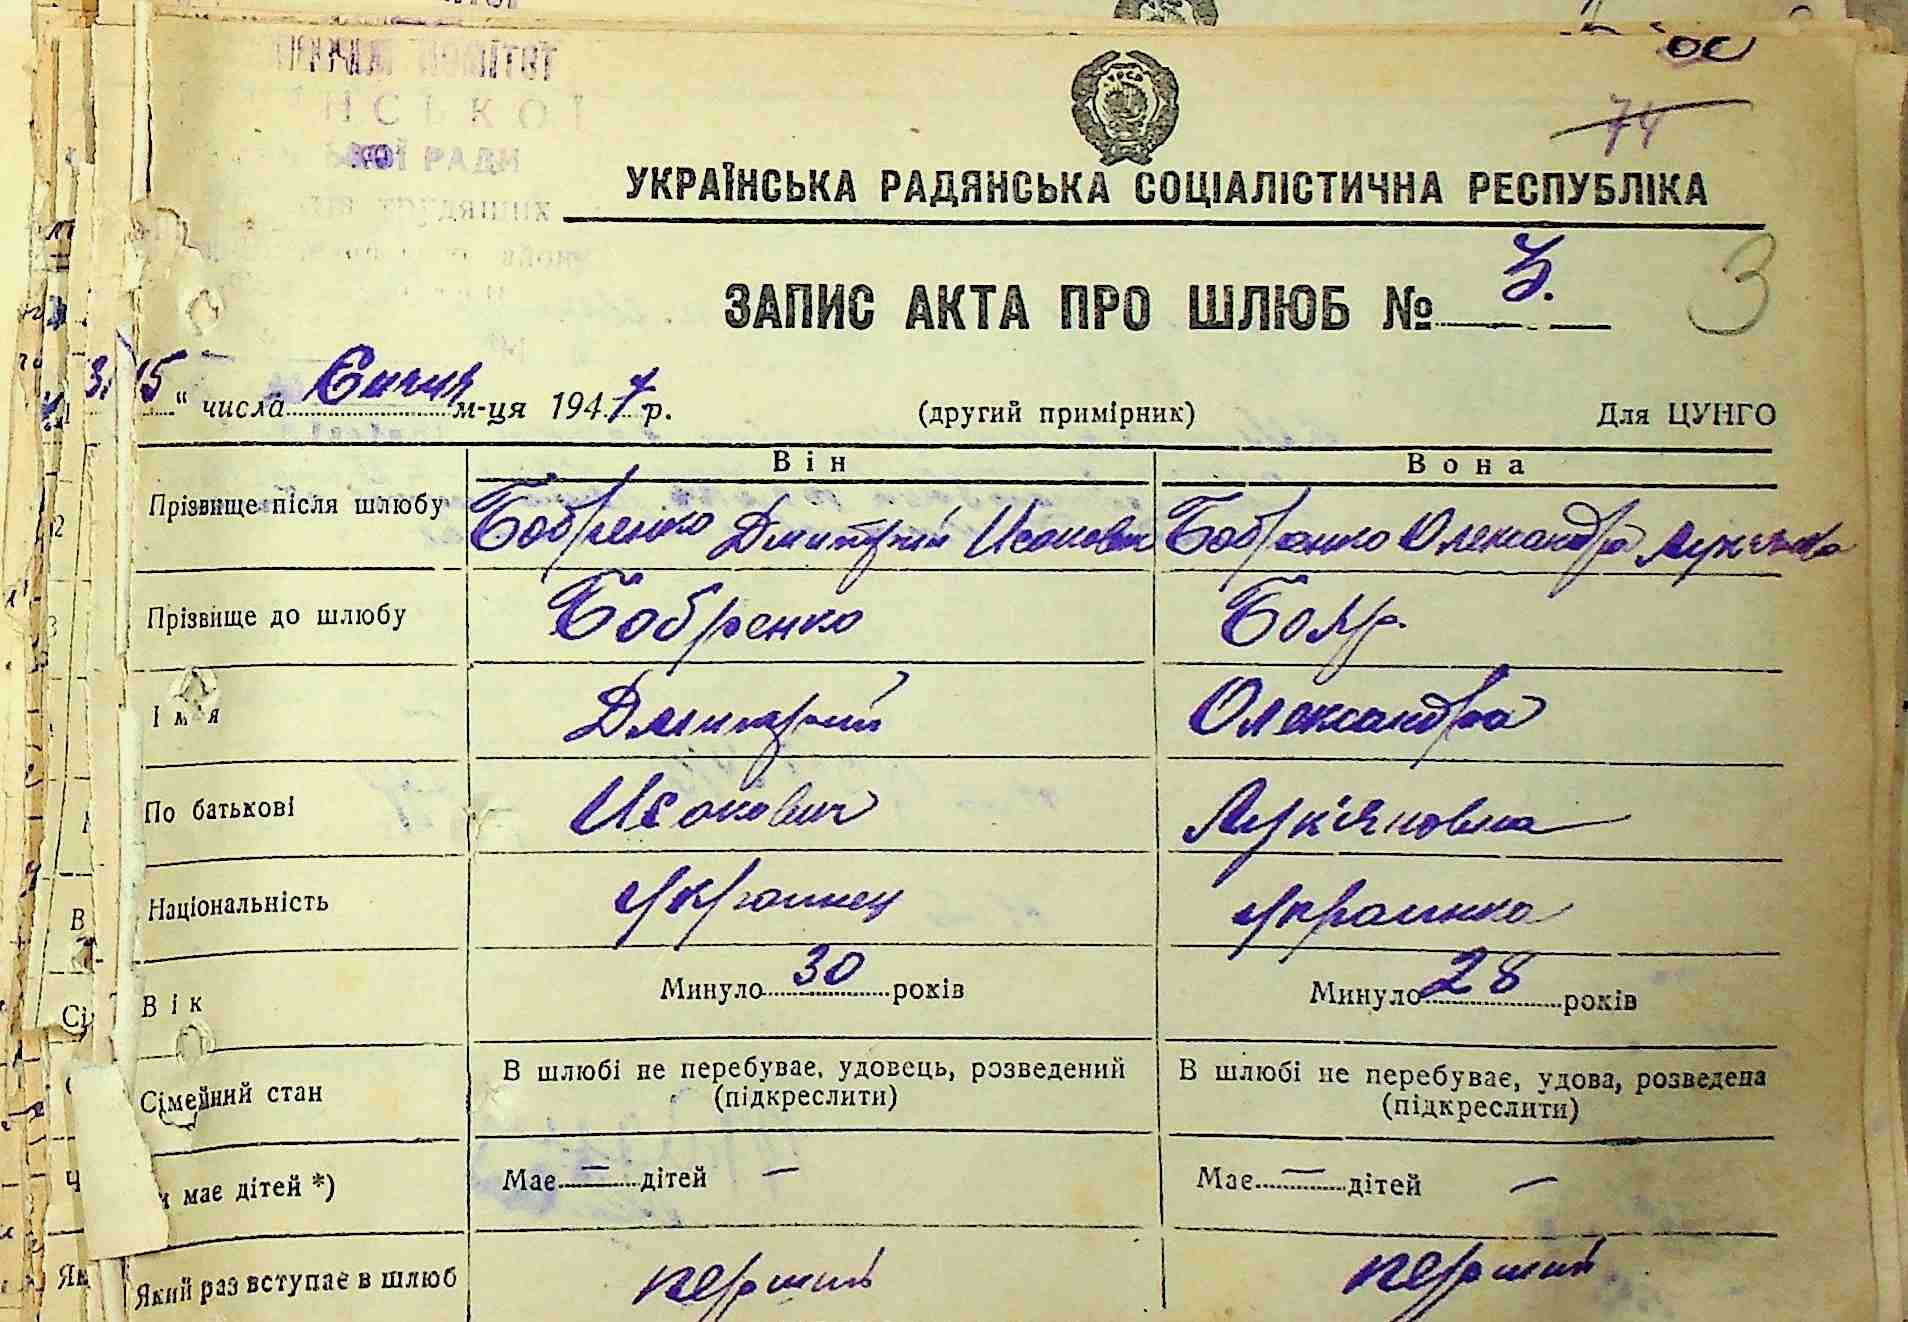 НСЬКОЇ
КОЇ РАДИ
трудящих
74
УКРАЇНСЬКА РАДЯНСЬКА СОЦІАЛІСТИЧНА РЕСПУБЛІКА
ЗАПИС АКТА ПРО ШЛЮБ № 3.
3
15 " числа Січня м-ця 1947 р. (другий примірник) Для ЦУНГО
Він Вона
Прізвище після шлюбу Бобренко Дмитрий Исакович Бобренко Олександра
Прізвище до шлюбу Бобренко Бояр
Ім'я Дмитрий Олександра
По батькові Исакович Лук'яновна
Національність украинец украинка
Вік Минуло 30 років Минуло 28 років
Сімейний стан В шлюбі не перебуває, удовець, розведений В шлюбі не перебуває, удова, розведена
(підкреслити) (підкреслити)
и має дітей *) Має — дітей — Має — дітей —
Який раз вступає в шлюб перший перший